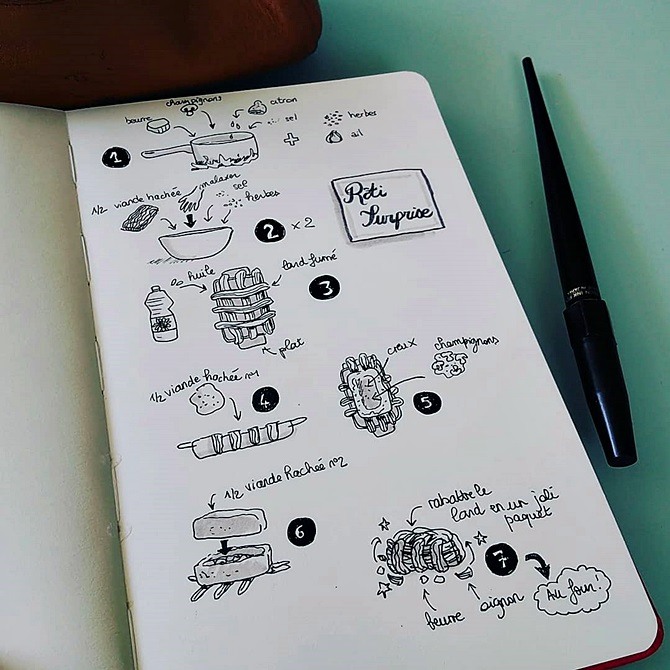 champignons
citron
beurre
sel
herbes
ail
+
1
Rôti
Surprise
1/2 viande hachée
malaxer
sel
herbes
2 x 2
huile
lard fumé
3
plat
1/2 viande hachée n°1
4
creux
champignons
5
1/2 viande hachée n°2
6
rabattre le
lard en un joli
paquet
7
Au four!
beurre
oignon